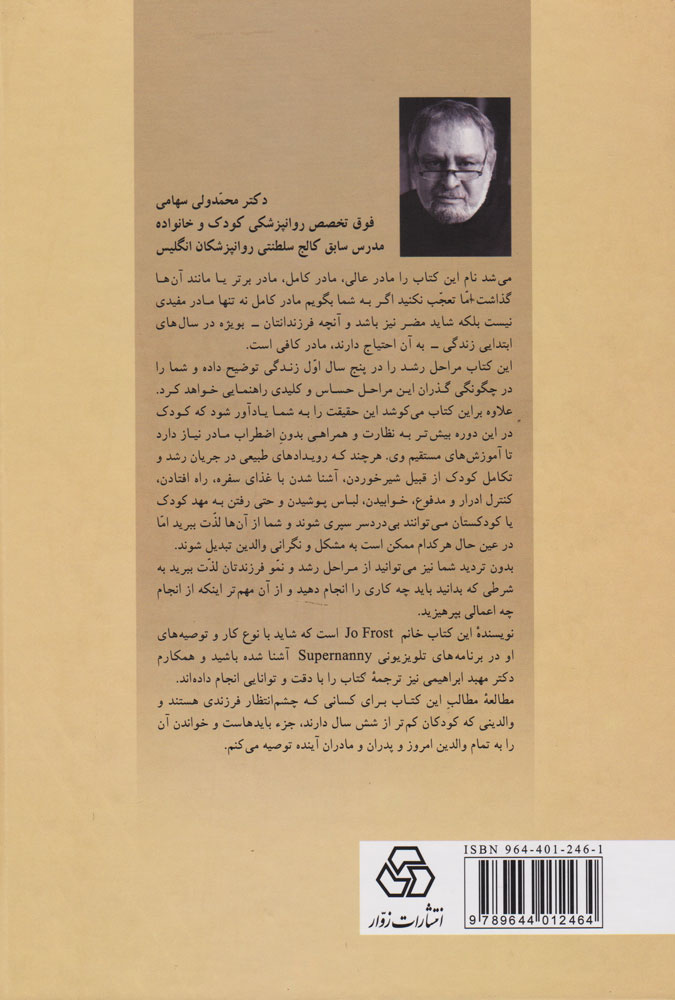 دکتر محمّدولی سهامی
فوق تخصص روانپزشکی کودک و خانواده
مدرس سابق کالج سلطنتی روانپزشکان انگلیس
می‌شد نام این کتاب را مادر عالی، مادر کامل، مادر برتر یا مانند آن‌ها
گذاشت امّا تعجّب نکنید اگر به شما بگویم مادر کامل نه تنها مادر مفیدی
نیست بلکه شاید مضر نیز باشد و آنچه فرزندانتان ــ بویژه در سال‌های
ابتدایی زندگی ــ به آن احتیاج دارند، مادر کافی است.
این کتاب مراحل رشد را در پنج سال اوّل زندگی توضیح داده و شما را
در چگونگی گذران این مراحل حساس و کلیدی راهنمایی خواهد کرد.
علاوه براین کتاب می‌کوشد این حقیقت را به شما یادآور شود که کودک
در این دوره بیش‌تر به نظارت و همراهی بدونِ اضطراب مادر نیاز دارد
تا آموزش‌های مستقیم وی. هرچند که رویدادهای طبیعی در جریان رشد و
تکامل کودک از قبیل شیرخوردن، آشنا شدن با غذای سفره، راه افتادن،
کنترل ادرار و مدفوع، خوابیدن، لباس پوشیدن و حتی رفتن به مهد کودک
یا کودکستان می‌توانند بی‌دردسر سپری شوند و شما از آن‌ها لذّت ببرید امّا
در عین حال هرکدام ممکن است به مشکل و نگرانی والدین تبدیل شوند.
بدون تردید شما نیز می‌توانید از مراحل رشد و نمّو فرزندتان لذّت ببرید به
شرطی که بدانید باید چه کاری را انجام دهید و از آن مهم‌تر اینکه از انجام
چه اعمالی بپرهیزید.
نویسندهٔ این کتاب خانم Jo Frost است که شاید با نوع کار و توصیه‌های
او در برنامه‌های تلویزیونی Supernanny آشنا شده باشید و همکارم
دکتر مهبد ابراهیمی نیز ترجمهٔ کتاب را با دقت و توانایی انجام داده‌اند.
مطالعهٔ مطالبِ این کتاب برای کسانی که چشم‌انتظار فرزندی هستند و
والدینی که کودکان کم‌تر از شش سال دارند، جزء بایدهاست و خواندن آن
را به تمام والدین امروز و پدران و مادران آینده توصیه می‌کنم.
ISBN 964-401-246-1
9 789644 012464
انتشارات زوّار